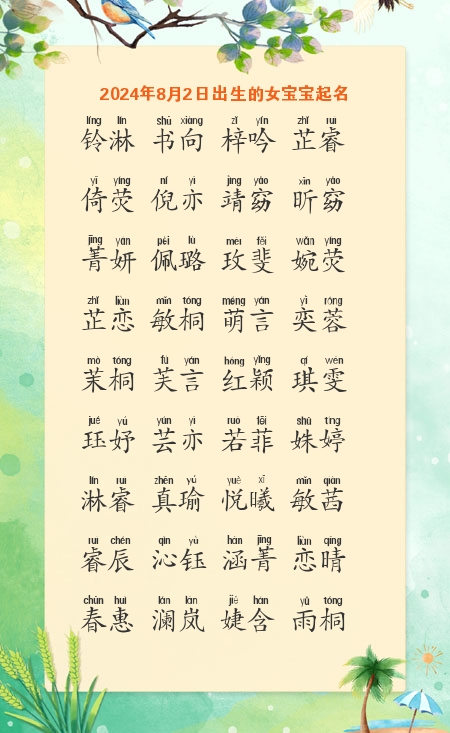 2024年8月2日出生的女宝宝起名
líng lín shū xiàng zǐ yín zhǐ ruì
铃淋 书向 梓吟 芷睿
yǐ yíng ní yì jìng yǎo xīn yǎo
倚荧 倪亦 靖窈 昕窈
jīng yán pèi lù méi fěi wǎn yíng
菁妍 佩璐 玫斐 婉荧
zhǐ liàn mǐn tóng méng yán yì róng
芷恋 敏桐 萌言 奕蓉
mò tóng fú yán hóng yǐng qí wén
茉桐 芙言 红颖 琪雯
jué yú yún yì ruò fēi shū tíng
珏妤 芸亦 若菲 姝婷
lín ruì zhēn yú yuè xī mǐn qiàn
淋睿 真瑜 悦曦 敏茜
ruì chén qìn yù hán jīng liàn qíng
睿辰 沁钰 涵菁 恋晴
chūn huì lán lán jié hán yǔ tóng
春惠 澜岚 婕含 雨桐